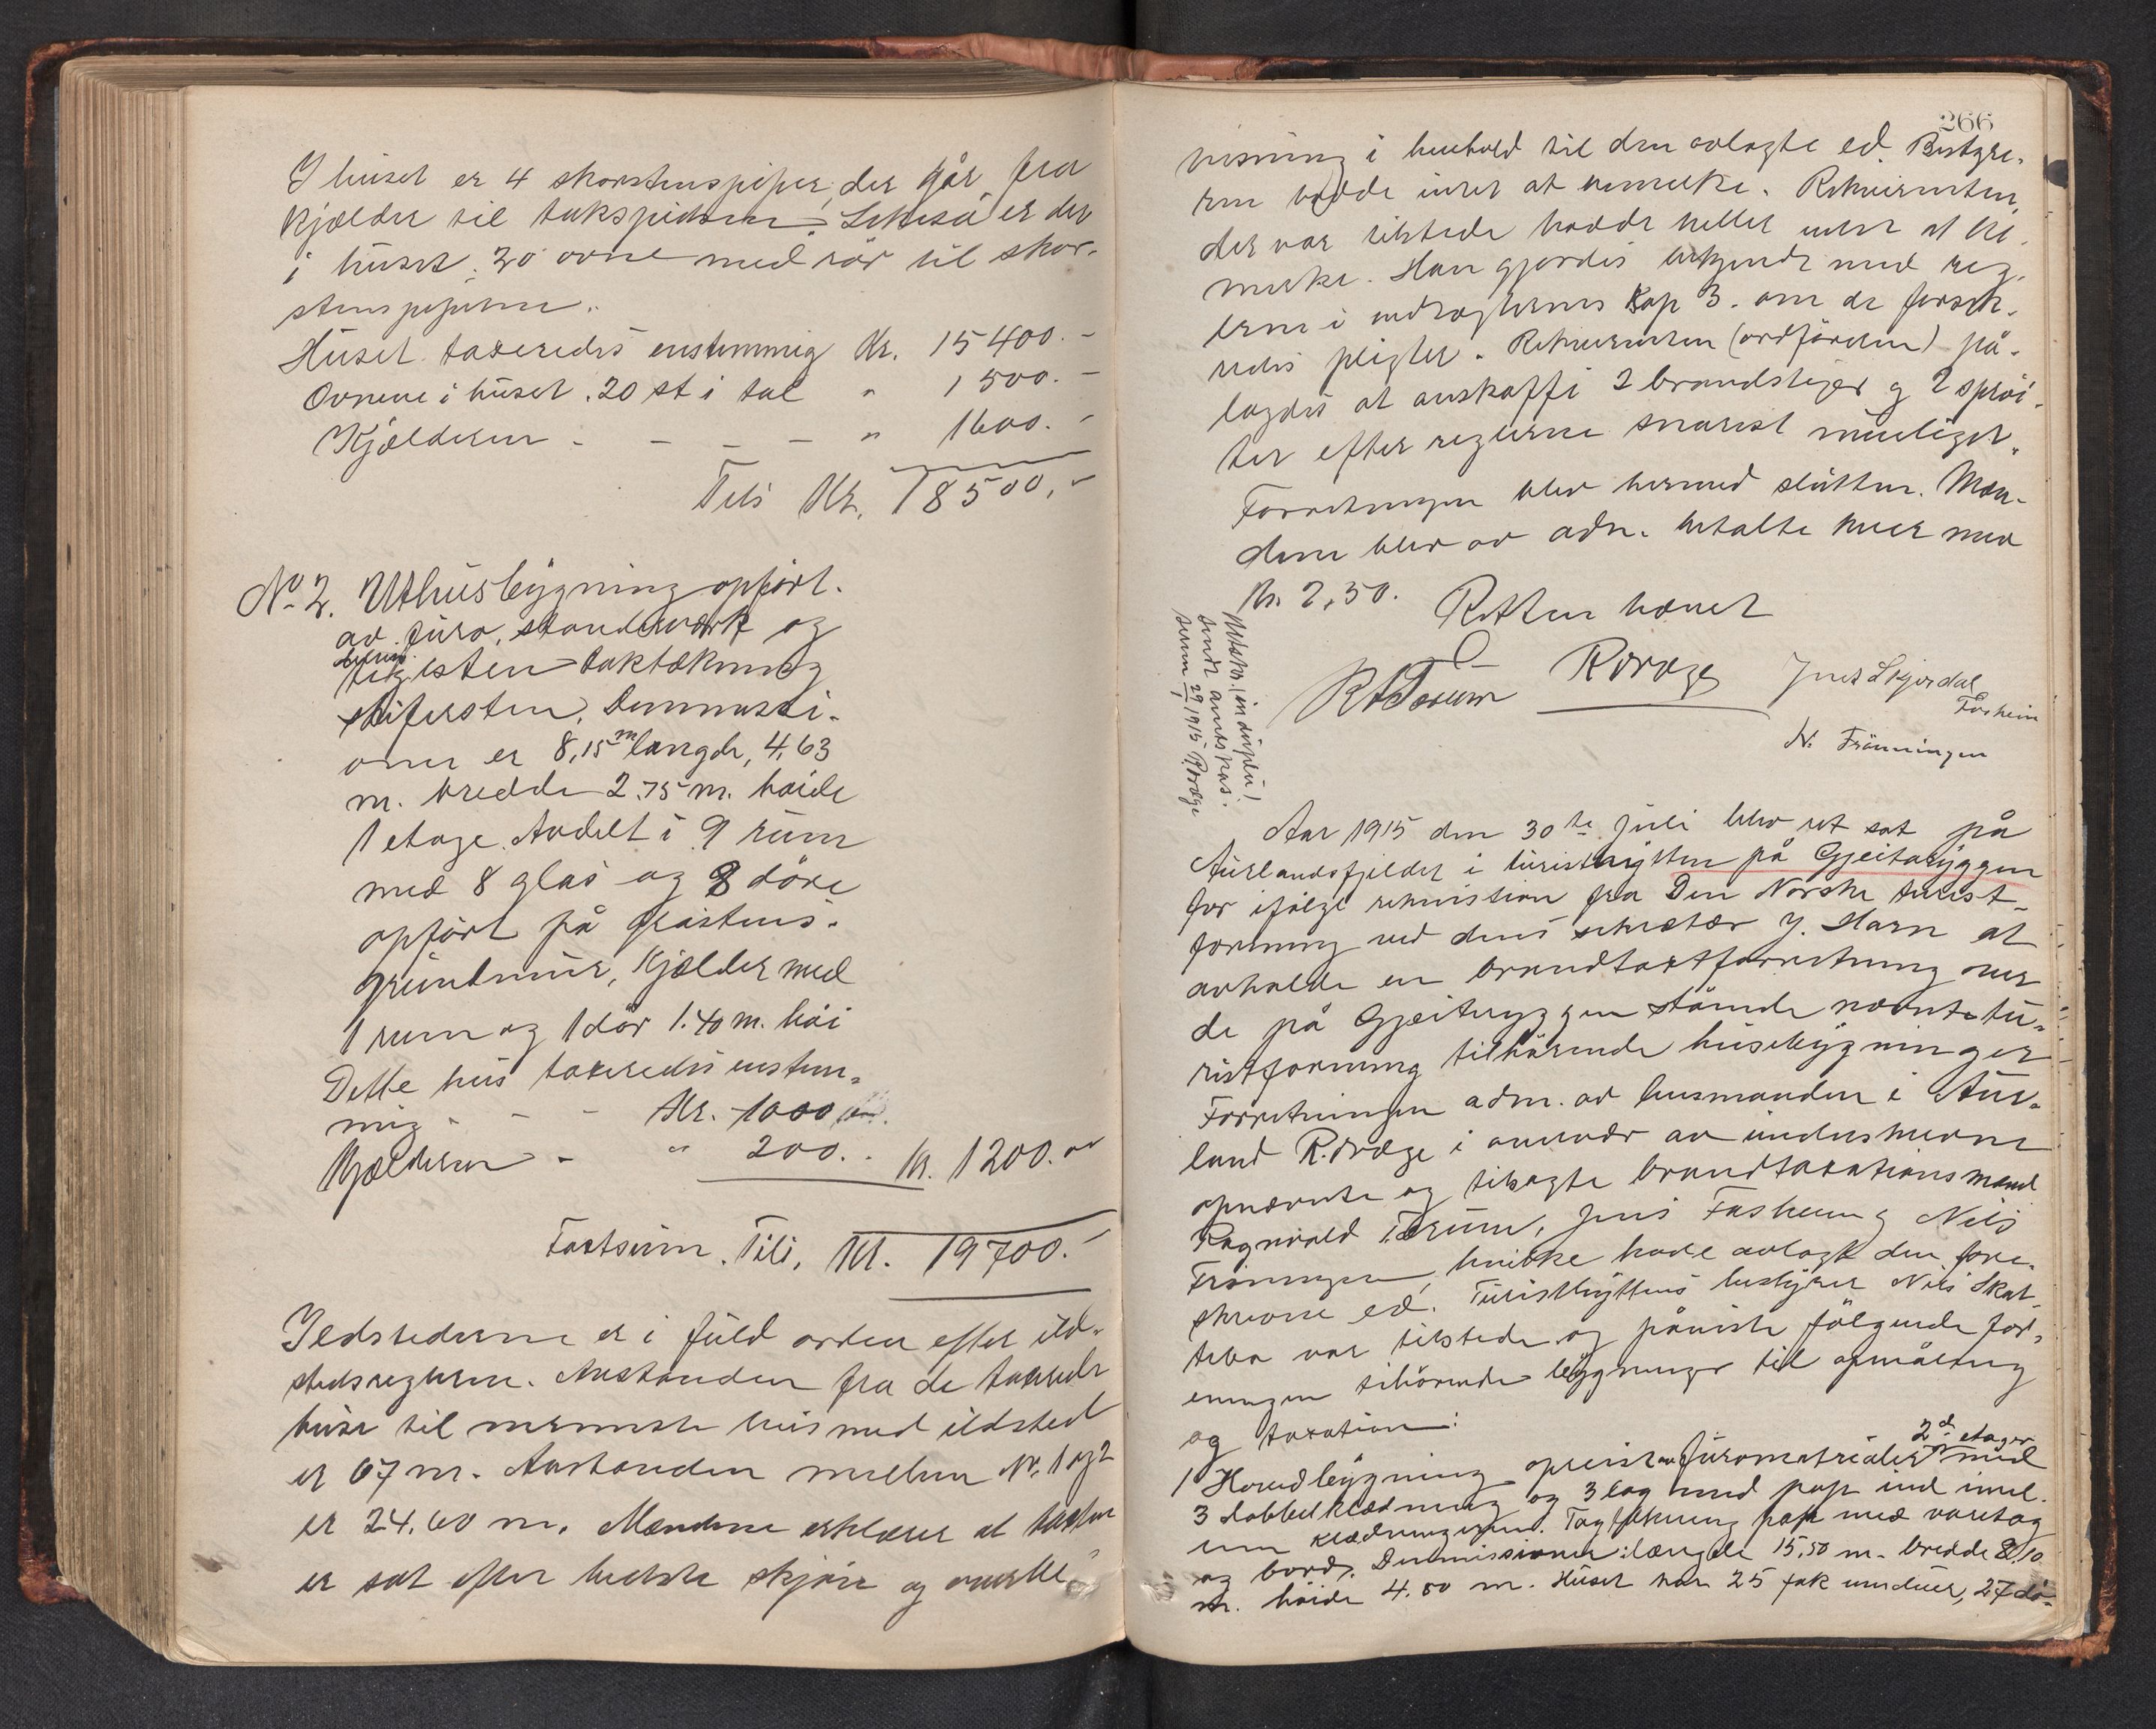 I huset er 4 skorstenspiper, der går fra
kjælder til takspidsene. Likeså er der
i huset 20 ovne med rör til skor-
stenspiperne.
Huset taxeredes enstemmig Kr. 15400.-
Ovnene i huset. 20 st i tal " 1500.-
Kjælderen - - - - " 1600.-
Tils Kr. 18500,-
No 2. Uthusbygning opfört.
av furu, standerværk og
tegl-sten taktækning
skifersten. Demmensi-
oner er 8,15 m længde, 4,63
m. bredde 2.75 m. höide
1 etage. Avdelt i 9 rum
med 8 glas og 8 döre
opfört på gråstens-
grundmur, kjælder med
1 rum og 1 dör 1.40 m. höi
Dette hus taxeredes enstem-
mig - - Kr. 1000
Kjælderen - " 200. - Kr. 1200.00
Taxtsum. Tils. Kr. 19700.-
Ildstederne er i fuld orden efter ild-
stedsreglerne. Avstanden fra de taxerede
huse til nærmeste hus med ildsted
er 67 m. Avstanden mellem No. 1 og 2
er 24.60 m. Mændene erklærer at taxten
er sat efter bedste skjön og overbe-
266
visning i henhold til den avlagte ed. Bestyre-
ren hadde intet at bemerke. Rekvirenten
der var tilstede hadde heller intet at be-
merke. Han gjordes bekjendt med reg-
lerne i vedtægternes Kap 3. om de forsik-
redes pligter. Rekvirenten (ordföreren) på-
lagdes at anskaffe 2 brandstiger og 2 spröi-
ter efter reglerne snarest muligst.
Forretningen blev hermed sluttet. Mæn-
dene blev av adm. betalte hver med
Kr. 2,50.
Retten hævet
R Terum R Vræge Jens Skjerdal
Fosheim
N. Fröningen
Utskr. (in duplo)
sendt amtskas-
seren 29/ 1915 RVræge
Aar 1915 den 30te juli blev ret sat på
Aurlandsfjeldet i turisthytten på Gjeiteryggen
for ifölge rekvisition fra Den Norske turist-
forening ved dens sekretær J. Harn at
avholde en brandtaxtforretning over
de på Gjeiteryggen stående nævnte tu-
ristforening tilhörende husebygninger
Forretningen adm. av lensmanden i Aur-
land R. Vræge i overvær av undeskrevne
opnævnte og tilsagte brandtaxationsmænd
Ragnvald Terum, Jens Fosheim og Nils
Fröningen, hvilke have avlagt den fore-
skrevne ed. Turisthyttens bestyrer Nils Skat-
tebo var tilstede og påviste fölgende for-
eningen tilhörende bygninger til opmåling
og taxation:
2d etager
1 Hovedbygning opreist av furumatrialer med
3 dobbel klædning og 3 lag med pap ind imel-
lem klædningerne. Tagtækning pap med næver tag
og bord. Demmissioner: længde 15,50 m. bredde 8,10
m. höide 4.80 m. Huset har 25 fak vinduer, 27 dö-